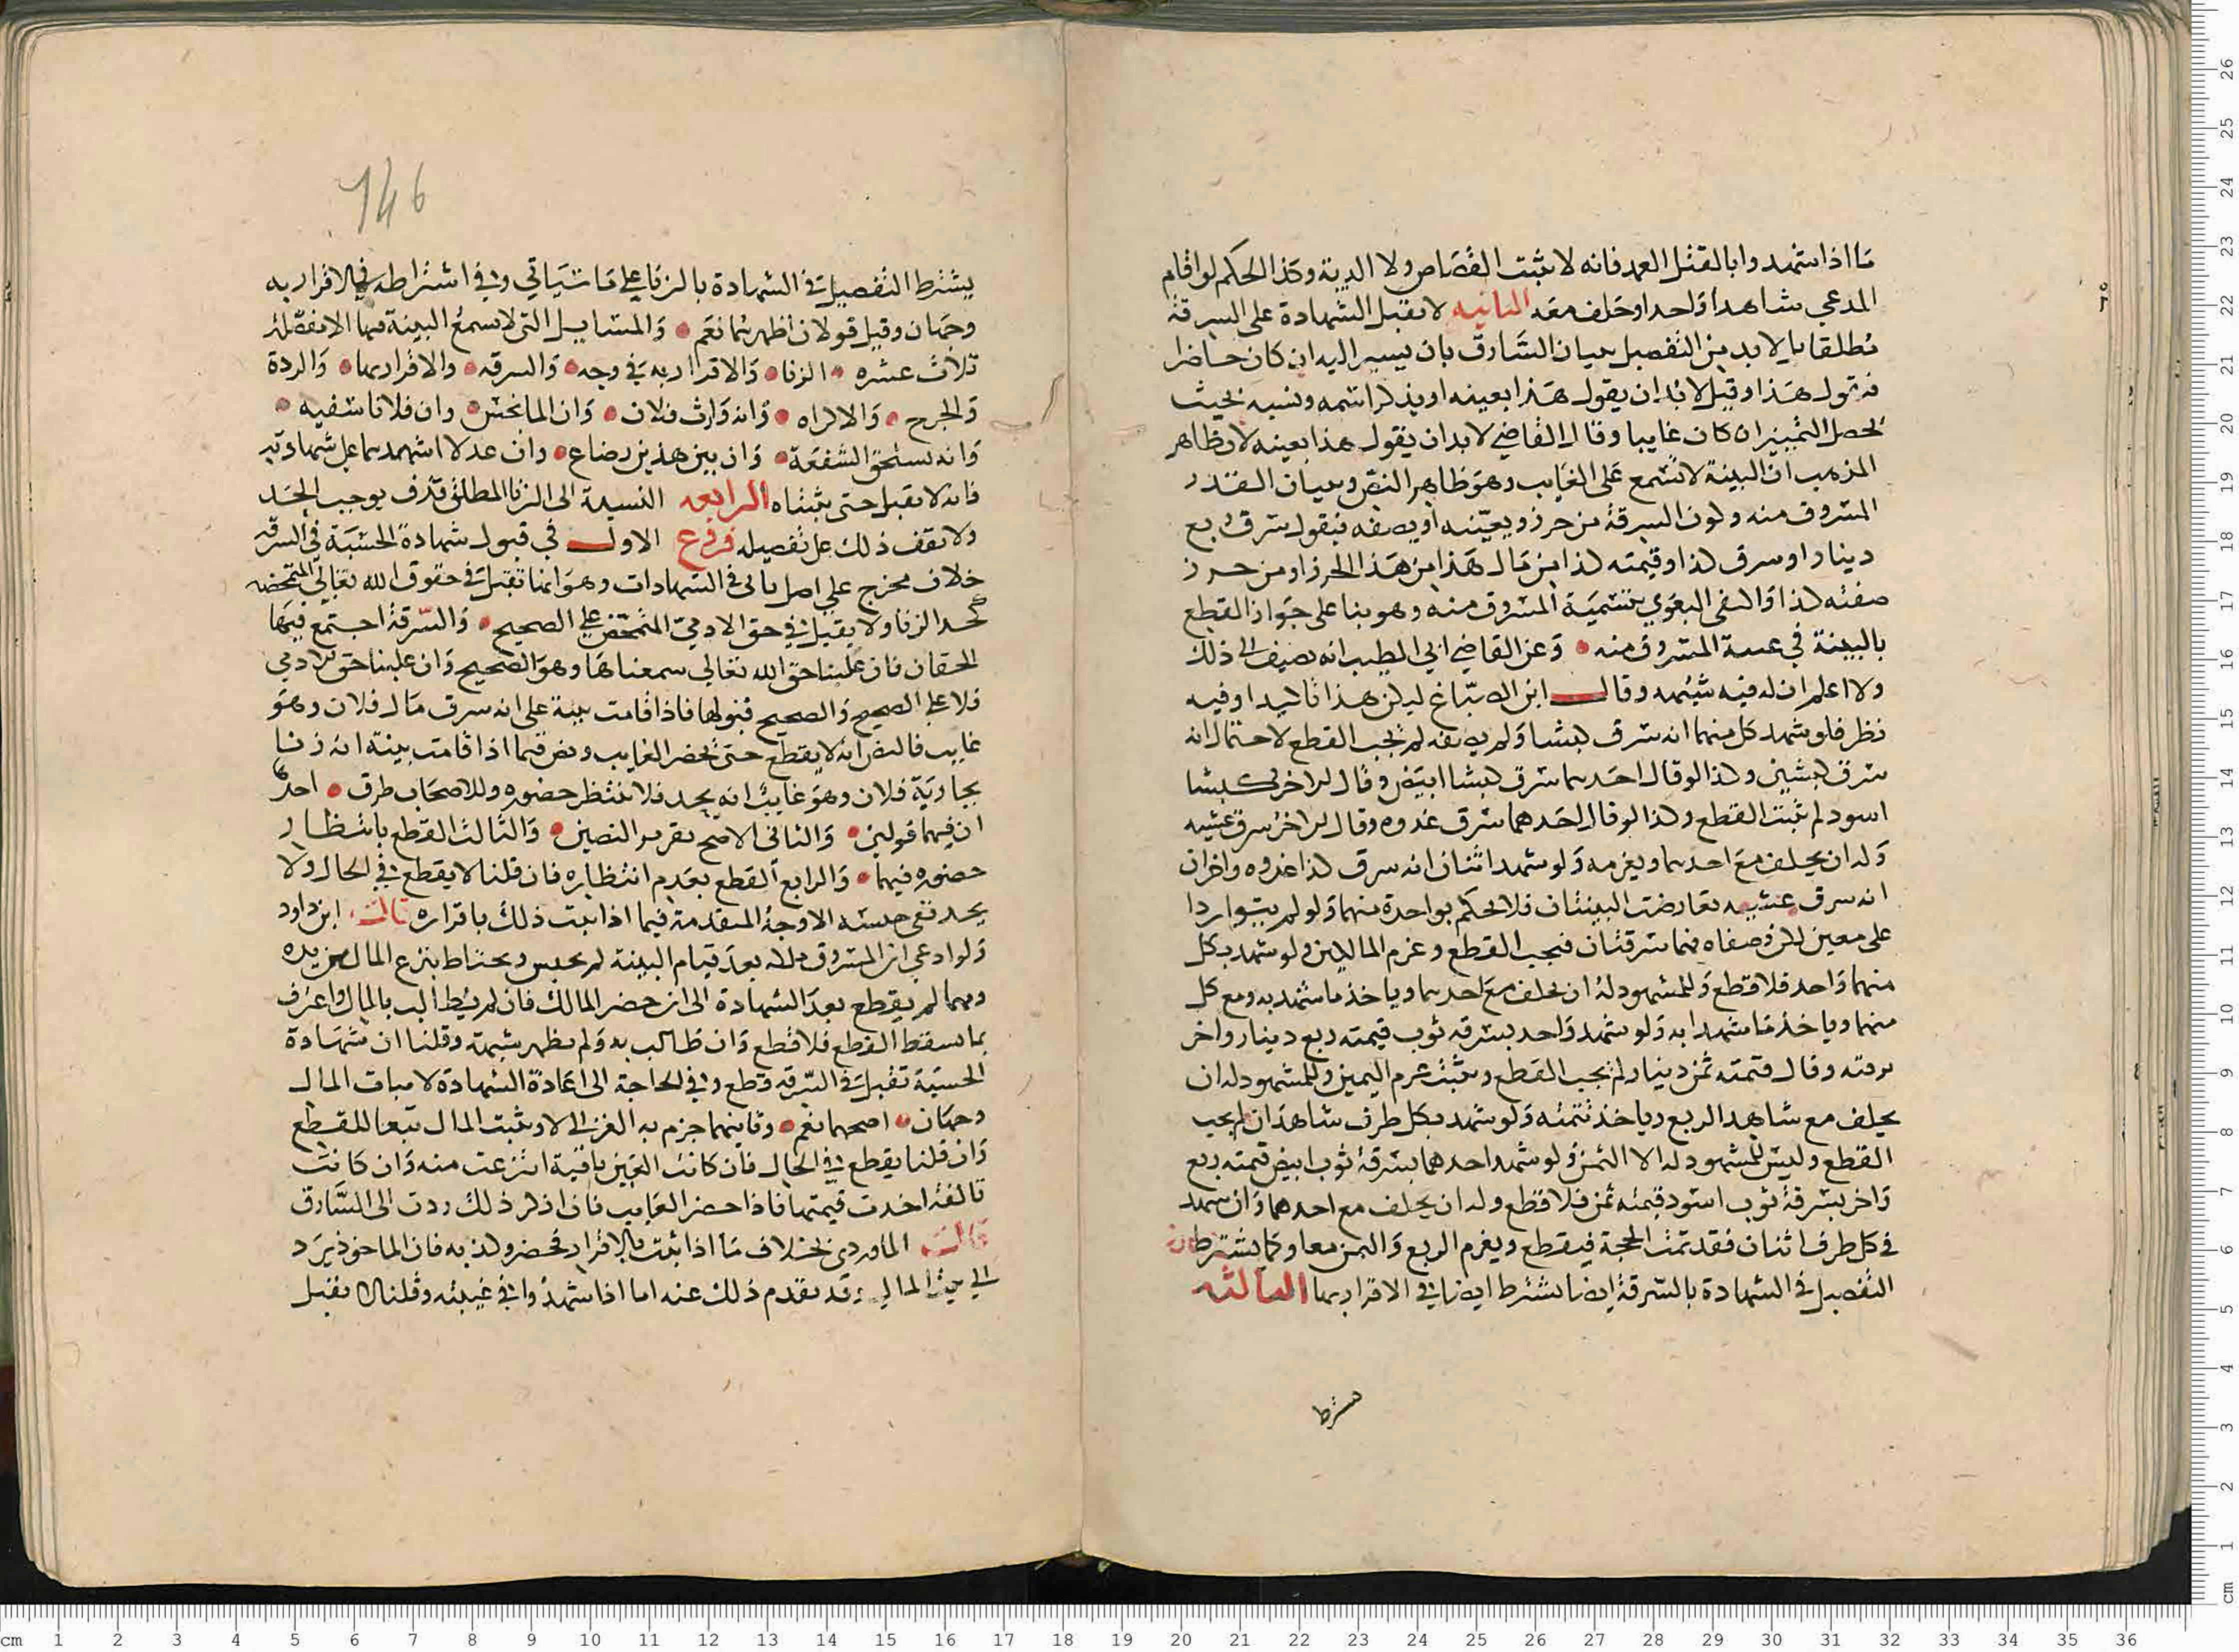 ما اذا شهدوا بالقتل العمد فانه لا يثبت القصاص ولا الدية وكذا الحكم لو اقام
المدعي شاهدا واحدا وحلف معه الثانيه لا تقبل الشهادة على السرقة
مطلقا بل لا بد من التفصيل ببيان السارق بان يشير اليه ان كان حاضرا
فيقول هذا وقيل لا بد ان يقول هذا بعينه او يذكر اسمه ونسبه بحيث
يحصل التمييز ان كان غايبا وقال القاضي لا بد ان يقول هذا بعينه لان ظاهر
المذهب ان البينة لا تسمع على الغايب وهو ظاهر النص وبيان القدر
المسروق منه وكون السرقة من حرز ويعينه او يصفه فيقول سرق ربع
دينار او سرق كذا وقيمته كذا من مال هذا من هذا الحرز او من حرز
صفته كذا واكتفى البغوي بتسمية المسروق منه وهو بنا على جواز القطع
بالبينة في غيبة المسروق منه وعن القاضي ابي الطيب انه يضيف الى ذلك
ولا اعلم ان له فيه شبهه وقال ابن الصباغ ليكن هذا تاكيدا وفيه
نظر فلو شهد كل منهما انه سرق كبشا ولم يصفه لم يجب القطع لاحتمال انه
سرق كبشين وكذا لو قال احدهما سرق كبشا ابيض وقال الاخر كبشا
اسود لم يثبت القطع وكذا لو قال احدهما سرق غدوه وقال الاخر سرق عشيه
وله ان يحلف مع احدهما ويغرمه ولو شهد اثنان انه سرق كذا غدوه واخران
انه سرق عشيه تعارضت البينتان فلا يحكم بواحدة منهما ولو لم يتواردا
على معين لكن وصفاه فهما سرقتان فيجب القطع وغرم المالين ولو شهد بكل
منهما واحد فلا قطع وللمشهود له ان يحلف مع احدهما وياخذ ما شهد به ومع كل
منهما وياخذ ما شهدا به ولو شهد واحد بسرقه ثوب قيمته ربع دينار واخر
وقال قيمته ثمن دينار لم يجب القطع ويثبت غرم الثمن وللمشهود له ان
يحلف مع شاهد الربع وياخذ تتمته ولو شهد بكل طرف شاهدان لم يجب
القطع وليس للمشهود له الا الثمن ولو شهد احدهما بسرقة ثوب ابيض قيمته ربع
واخر بسرقة ثوب اسود قيمته ثمن فلا قطع وله ان يحلف مع احدهما وان شهد
في كل طرف اثنان فقد تمت الحجة فيقطع ويغرم الربع والثمن معا وكما يشترط
التفصيل في الشهادة بالسرقة ايضا يشترط ايضا في الاقرار بها الثالثه
يشترط
146
يشترط التفصيل في الشهادة بالزنا على ما سياتي وفي اشتراطه في الاقرار به
وجهان وقيل قولان اظهرهما نعم والمسايل التي لا تسمع البينة فيها الا مفصلة
ثلاث عشره الزنا والاقرار به في وجه والسرقه والاقرار بها والردة
والجرح والاكراه وانه وارث فلان وان الما نجس وان فلانا سفيه
وانه يستحق الشفعة وان بين هذين رضاع وان عدلا اشهدهما على شهادته
فانه لا يقبل حتى يثبتاه الرابعه النسبة الى الزنا المطلق قذف يوجب الحد
ولا يقف ذلك على تفصيله فروع الاول في قبول شهادة الحسبة في السرقه
خلاف مخرج على اصل ياتي في الشهادات وهو انها تقبل في حقوق الله تعالى المتمحضه
كحد الزنا ولا يقبل في حق الادمي المتمحض على الصحيح والسرقة اجتمع فيها
الحقان فان غلبنا حق الله تعالى سمعناها وهو الصحيح وان غلبنا حق الادمي
فلا على الصحيح والصحيح قبولها فاذا قامت بينة على انه سرق مال فلان وهو
غايب فالنص انه لا يقطع حتى يحضر الغايب ونص فيما اذا قامت بينة انه زنا
بجارية فلان وهو غايب انه يحد فلا ننتظر حضوره وللاصحاب طرق احدها
ان فيهما قولين والثاني الاصح تقرير النصين والثالث القطع بانتظار
حضوره فيهما والرابع القطع بعدم انتظاره فان قلنا لا يقطع في الحال ولا
يحد ففي حبسه الاوجه المتقدمة فيما اذا ثبت ذلك باقراره قال ابن داود
ولو ادعى ان المسروق ملكه بعد قيام البينة لم يحبس ويحتاط بنزع المال من يده
ومهما لم يقطع بعد الشهادة الى ان حضر المالك فان لم يطالب بالمال واعترف
بما يسقط القطع فلا قطع وان طالب به ولم تظهر شبهة وقلنا ان شهادة
الحسبة تقبل في السرقه قطع وفي الحاجة الى اعادة الشهادة لاثبات المال
وجهان اصحهما نعم وثانيهما جزم به الغزالي لا ويثبت المال تبعا للقطع
وان قلنا يقطع في الحال فان كانت العين باقية انتزعت منه وان كانت
تالفة اخذت قيمتها فاذا حضر الغايب فان اذكر ذلك ردت الى السارق
قال الماوردي بخلاف ما اذا ثبت بالاقرار فحضر وكذبه فان الماخوذ يرد
الى بيت المال وقد تقدم ذلك عنه اما اذا شهدوا في غيبته وقلنا لا تقبل